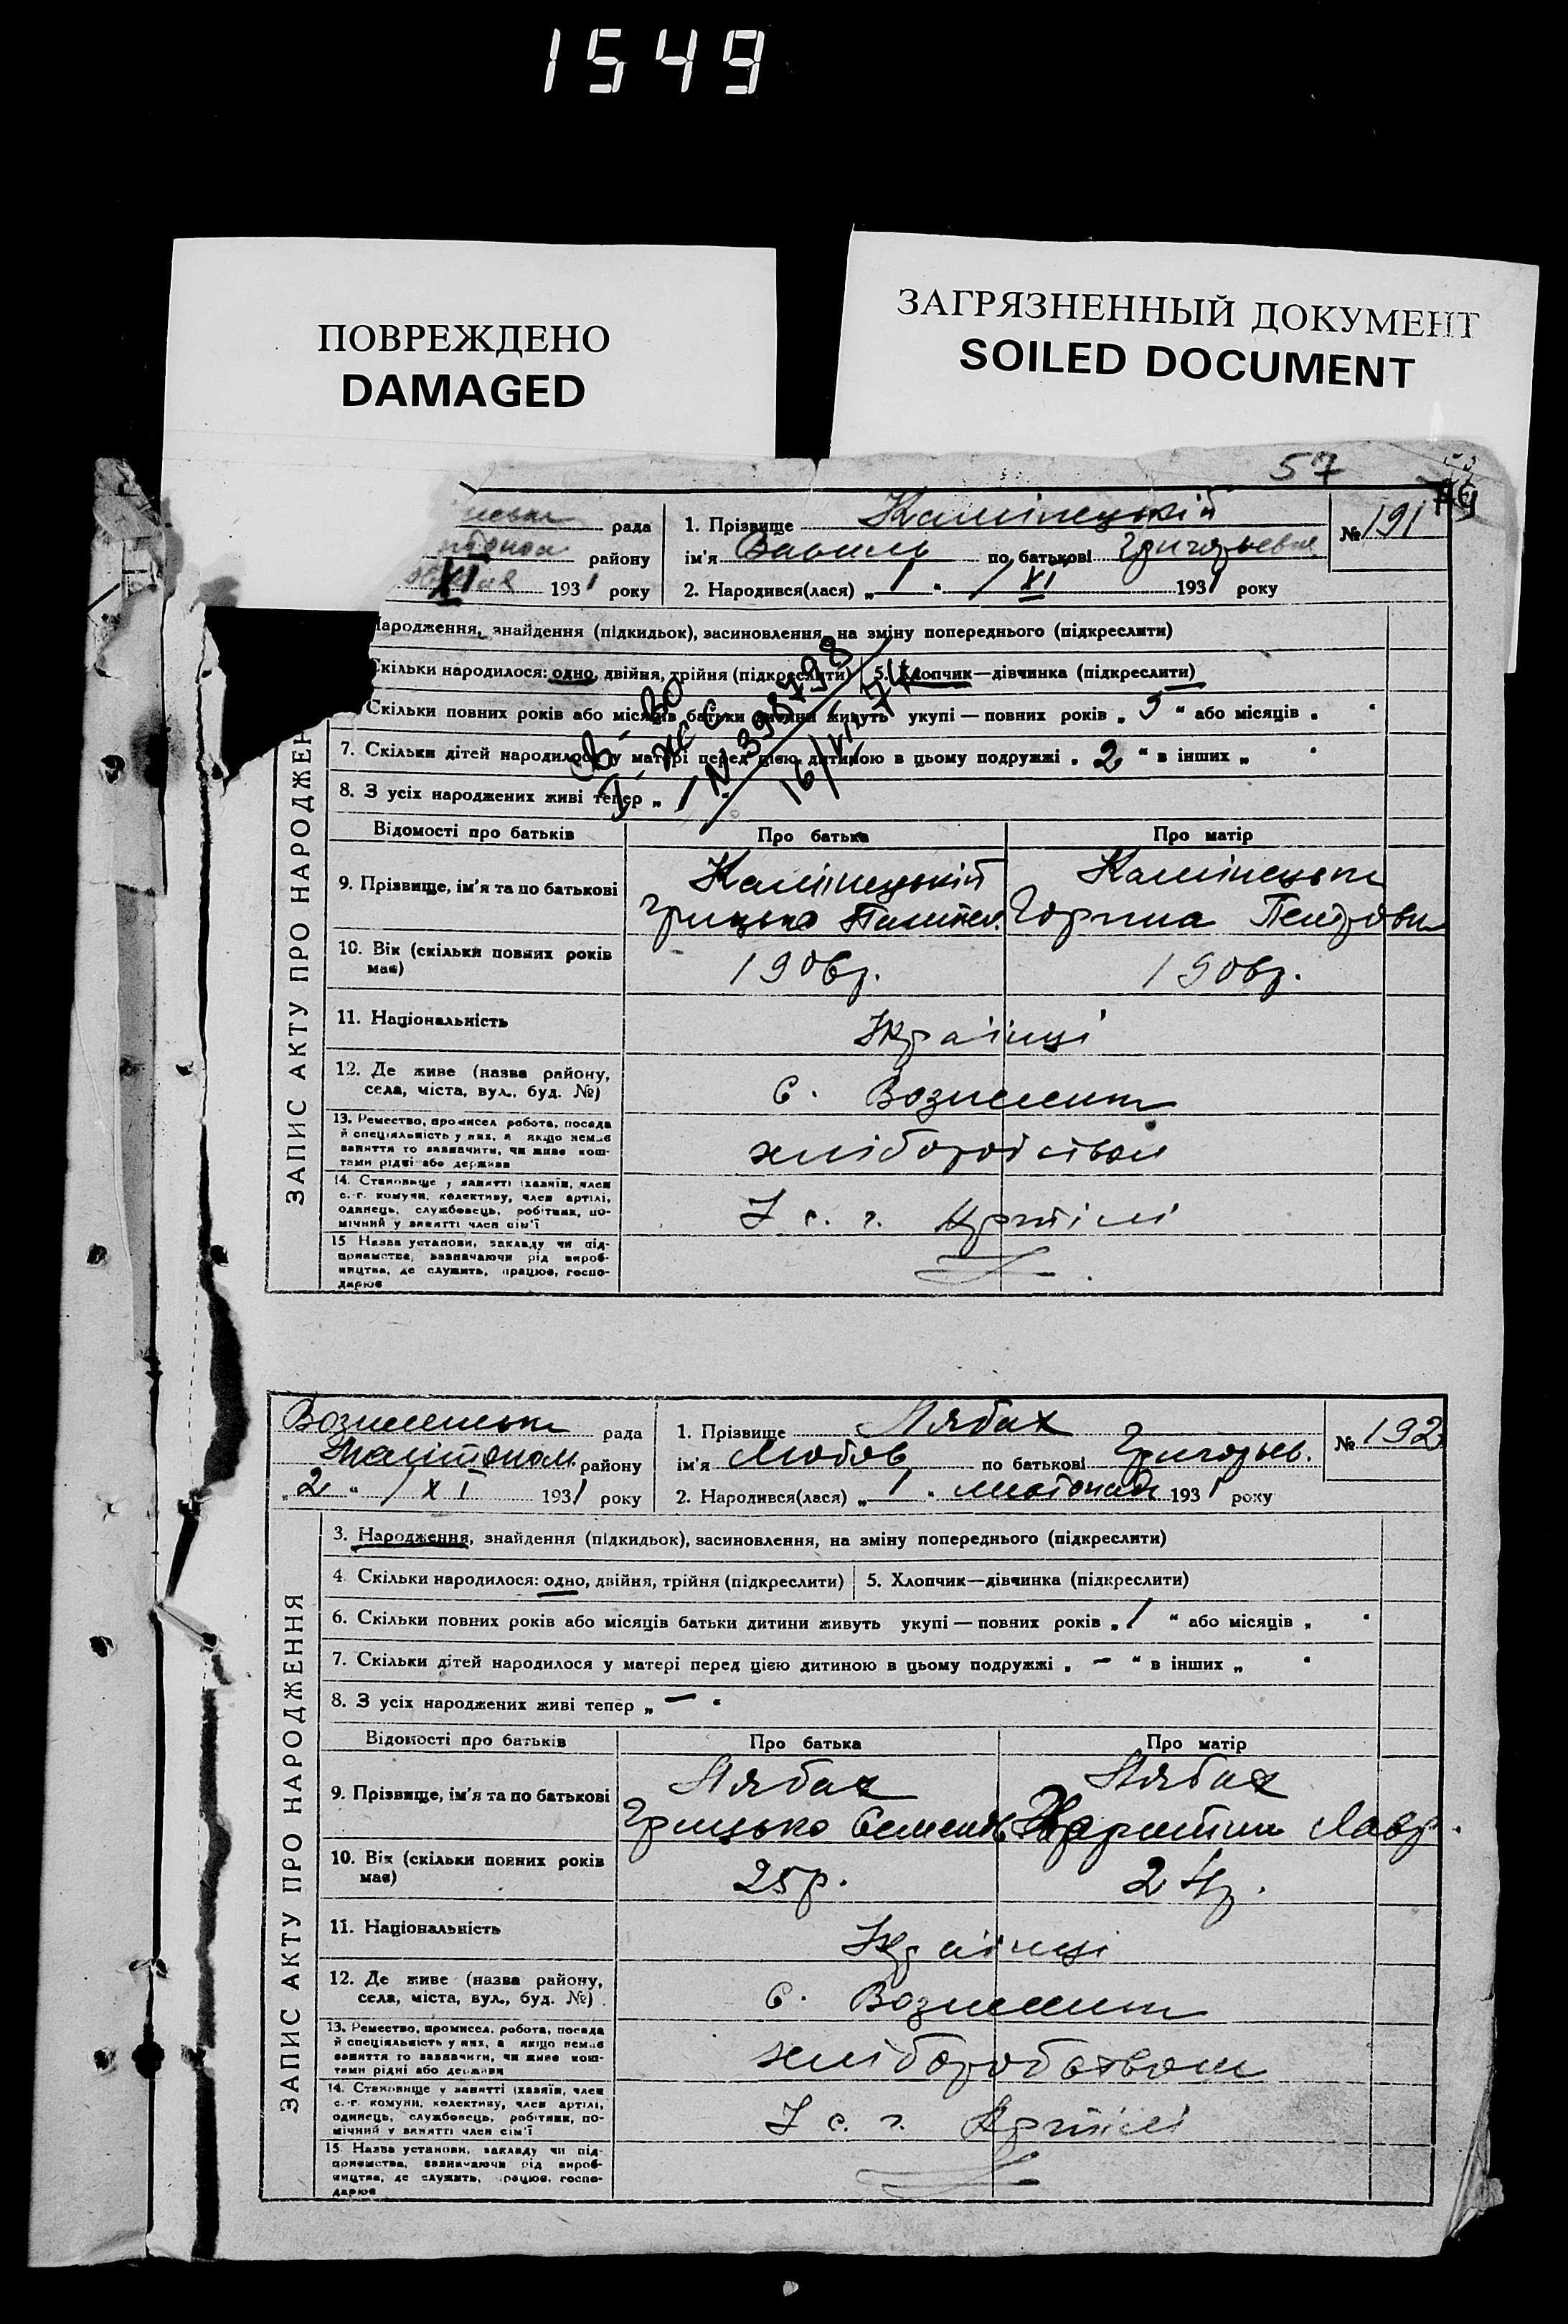 1549
ПОВРЕЖДЕНО
DAMAGED
ЗАГРЯЗНЕННЫЙ ДОКУМЕНТ
SOILED DOCUMENT
57
рада
району
XI 1931 року
1. Прізвище Камінецькій
ім'я Василь по батькові Григорьевич
2. Народився(лася) „ 1 " / XI 1931 року
№ 191
ародження, знайдення (підкидьок), засиновлення, на зміну попереднього (підкреслити)
Скільки народилося: одно, двійня, трійня (підкреслити) 5. Хлопчик—дівчинка (підкреслити)
Скільки повних років або місяців батьки дитини живуть укупі — повних років „ 5 " або місяців „
7. Скільки дітей народилося у матері перед цією дитиною в цьому подружжі „ 2 " в інших „
8. З усіх народжених живі тепер „
№ 395798
16/VI-71
ЗАПИС АКТУ ПРО НАРОДЖЕН
Відомості про батьків Про батька Про матір
9. Прізвище, ім'я та по батькові
Камінецькій Камінецьки
Грицько Горпина
10. Вік (скільки повних років має)
1906р. 1906р.
11. Національність
Українці
12. Де живе (назва району, села, міста, вул., буд. №)
С.
13. Ремество, промисел робота, посада й спеціяльність у них, а якщо немає заняття то зазначити, чи живе коштами рідні або держави
хліборобством
14. Становище у занятті (хазяїн, член с.-г. комуни, колективу, член артілі, одинець, службовець, робітник, помічний у занятті член сім'ї
У с. г. Артілі
15 Назва установи, закладу чи підприємства, зазначаючи рід виробництва, де служить, працює, господарює
рада
району
„ 2 " / XI 1931 року
1. Прізвище Лябах
ім'я Любов по батькові Григорьев.
2. Народився(лася) „ 1 " листопада 1931 року
№ 192
3. Народження, знайдення (підкидьок), засиновлення, на зміну попереднього (підкреслити)
4. Скільки народилося: одно, двійня, трійня (підкреслити) 5. Хлопчик—дівчинка (підкреслити)
6. Скільки повних років або місяців батьки дитини живуть укупі — повних років „ 1 " або місяців „
7. Скільки дітей народилося у матері перед цією дитиною в цьому подружжі „ — " в інших „ "
8. З усіх народжених живі тепер „ — "
ЗАПИС АКТУ ПРО НАРОДЖЕННЯ
Відомості про батьків Про батька Про матір
9. Прізвище, ім'я та по батькові
Лябах Лябах
Грицько Семенов Харитина Лавр.
10. Вік (скільки повних років має)
25р. 24р.
11. Національність
Українці
12. Де живе (назва району, села, міста, вул., буд. №)
С.
13. Ремество, промисел, робота, посада й спеціяльність у них, а якщо немає заняття то зазначити, чи живе коштами рідні або держави
хліборобством
14. Становище у занятті (хазяїн, член с.-г. комуни, колективу, член артілі, одинець, службовець, робітник, помічний у занятті член сім'ї
У с. г. Артілі
15 Назва установи, закладу чи підприємства, зазначаючи рід виробництва, де служить, працює, господарює